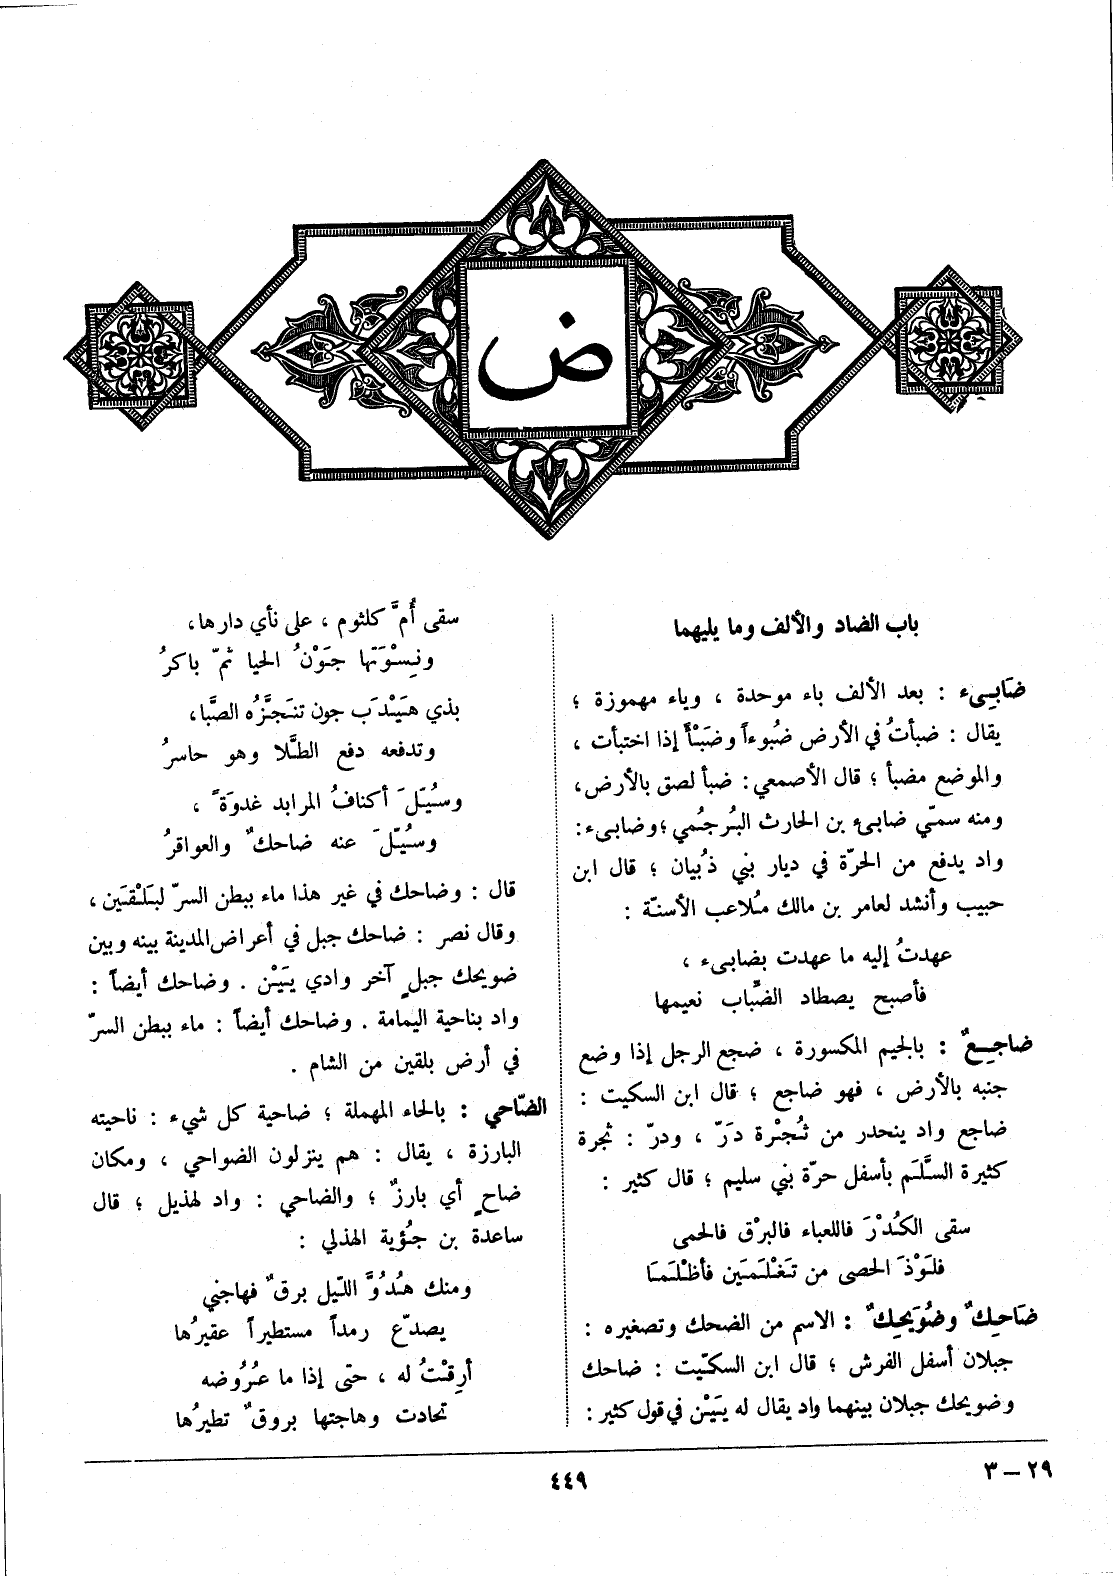 ض
باب الضاد والألف وما يليهما
ضَابِىء : بعد الألف باء موحدة ، وياء مهموزة ؛
يقال : ضبأتُ في الأرض ضُبوءاً وضَبْأً إذا اختبأت ،
والموضع مضبأ ؛ قال الأصمعي : ضبأ لصق بالأرض ،
ومنه سمّي ضابىء بن الحارث البُرجُمي ؛ وضابىء :
واد يدفع من الحرّة في ديار بني ذُبيان ؛ قال ابن
حبيب وأنشد لعامر بن مالك مُلاعب الأسنّة :
عهدتُ إليه ما عهدت بضابىء ،
فأصبح يصطاد الضّباب نعيمها
ضاجِعٌ : بالجيم المكسورة ، ضجع الرجل إذا وضع
جنبه بالأرض ، فهو ضاجع ؛ قال ابن السكيت :
ضاجع واد ينحدر من ثُجْرة دَرّ ، ودرّ : ثجرة
كثيرة السَّلَم بأسفل حرّة بني سليم ؛ قال كثير :
سقى الكُدْرَ فاللعباء فالبرْق فالحمى
فلَوْذَ الحصى من تَغْلَمَين فأظْلَمَا
ضَاحِكٌ وضُوَيحِكٌ : الاسم من الضحك وتصغيره :
جبلان أسفل الفرش ؛ قال ابن السكّيت : ضاحك
وضويحك جبلان بينهما واد يقال له يَيَنْ في قول كثير :
سقى أُمَّ كلثوم ، على نأي دارها ،
ونِسْوَتَها جَوْنُ الحيا ثمّ باكرُ
بذي هَيْدَب جون تنَجِّزُه الصَّبا ،
وتدفعه دفع الطَّلا وهو حاسرُ
وسُيّلَ أكنافُ المرابد غدوَةً ،
وسُيّلَ عنه ضاحكٌ والعواقرُ
قال : وضاحك في غير هذا ماء ببطن السرّ لبَلْقَين ،
وقال نصر : ضاحك جبل في أعراض المدينة بينه وبين
ضويحك جبلٍ آخر وادي يَيَنْ . وضاحك أيضاً :
واد بناحية اليمامة . وضاحك أيضاً : ماء ببطن السرّ
في أرض بلقين من الشام .
الضّاحي : بالحاء المهملة ؛ ضاحية كل شيء : ناحيته
البارزة ، يقال : هم ينزلون الضواحي ، ومكان
ضاحٍ أي بارزٌ ؛ والضاحي : واد لهذيل ؛ قال
ساعدة بن جُؤية الهذلي :
ومنك هُدُوَّ اللّيل برقٌ فهاجني
يصدّع رمداً مستطيراً عقيرُها
أرِقْتُ له ، حتى إذا ما عُرُوضه
تحادت وهاجتها بروقٌ تطيرُها
٢٩ – ٣
٤٤٩